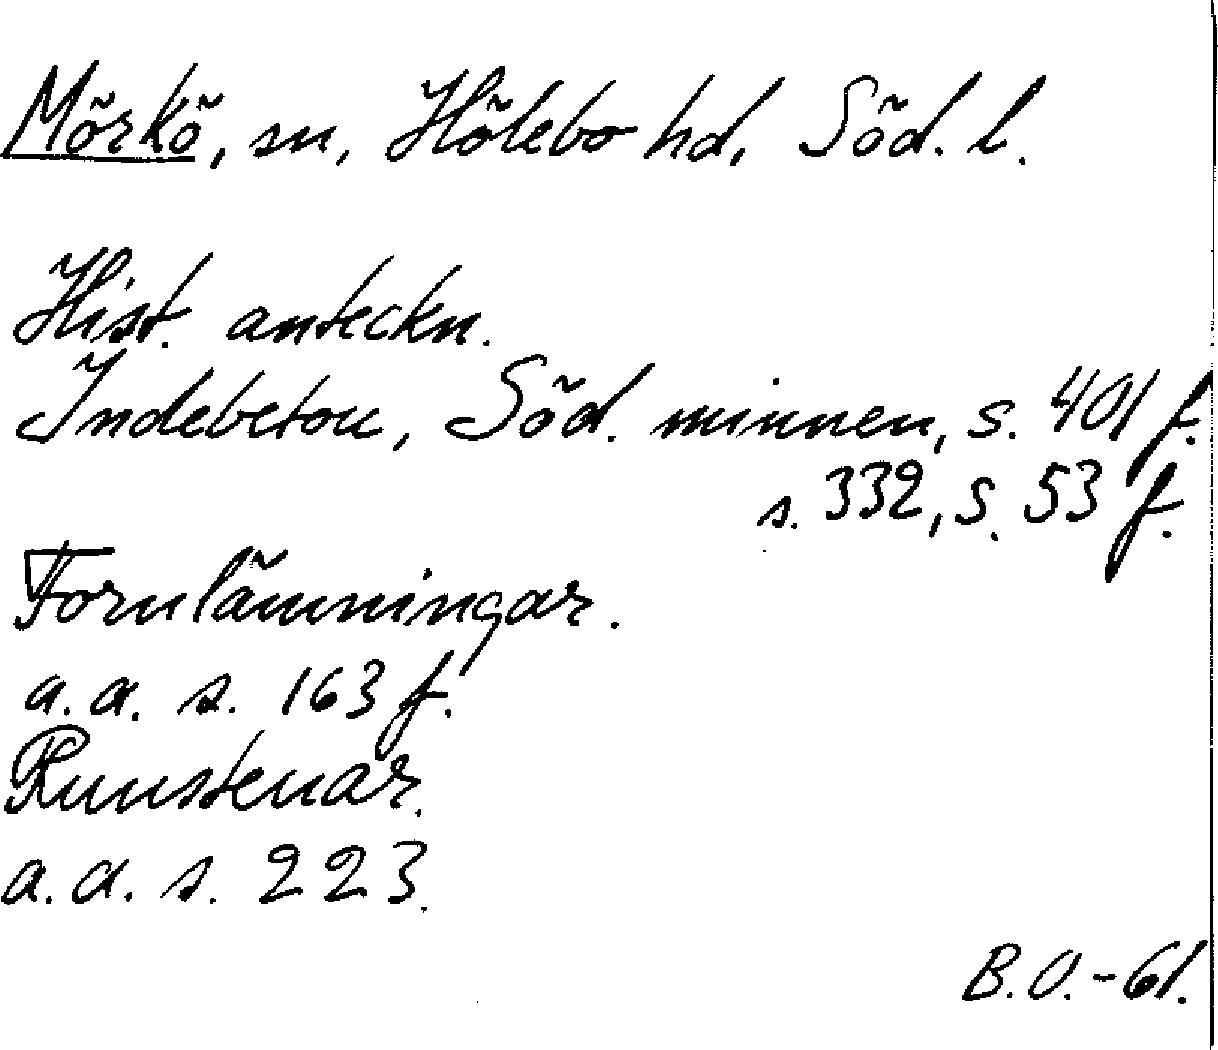 Mörkö, sn, Hölebo hd, Söd. l.
Hist. anteckn.
Indebetou, Söd. minnen, s. 401 f.
s. 332, s. 53 f.
Fornlämningar.
a. a. s. 163 f.
Runstenar.
a. a. s. 223.
B.O.-61.